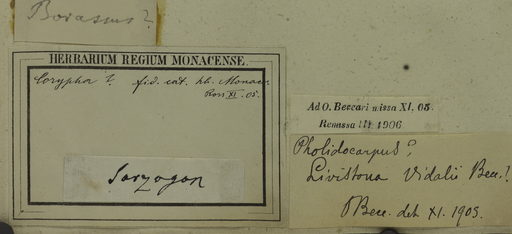 Borassus?
HERBARIUM REGIUM MONACENSE.
Corypha ?. fid. cat. hb. Monac.
Ross XI. 05.
Saryogon
Ad O. Beccari missa XI. 05.
Remissa III 1906
Pholidocarpus?
Livistona Vidalii Becc.?
OBecc. det. XI. 1905.